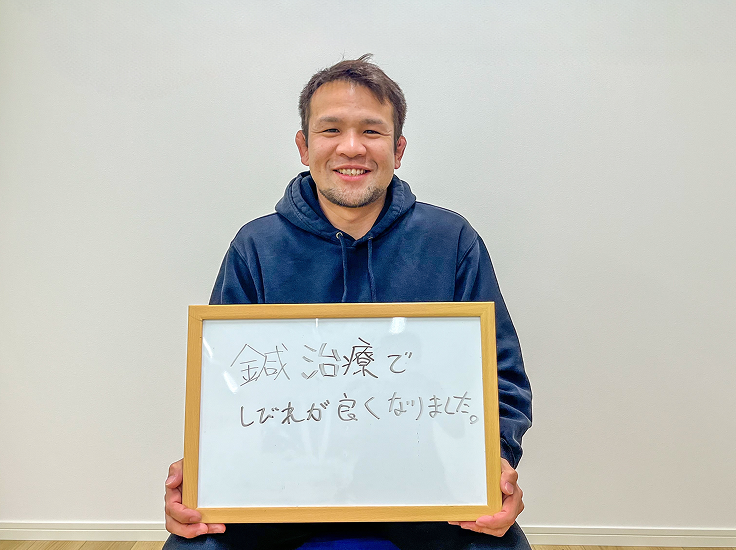 鍼治療で
しびれが良くなりました。